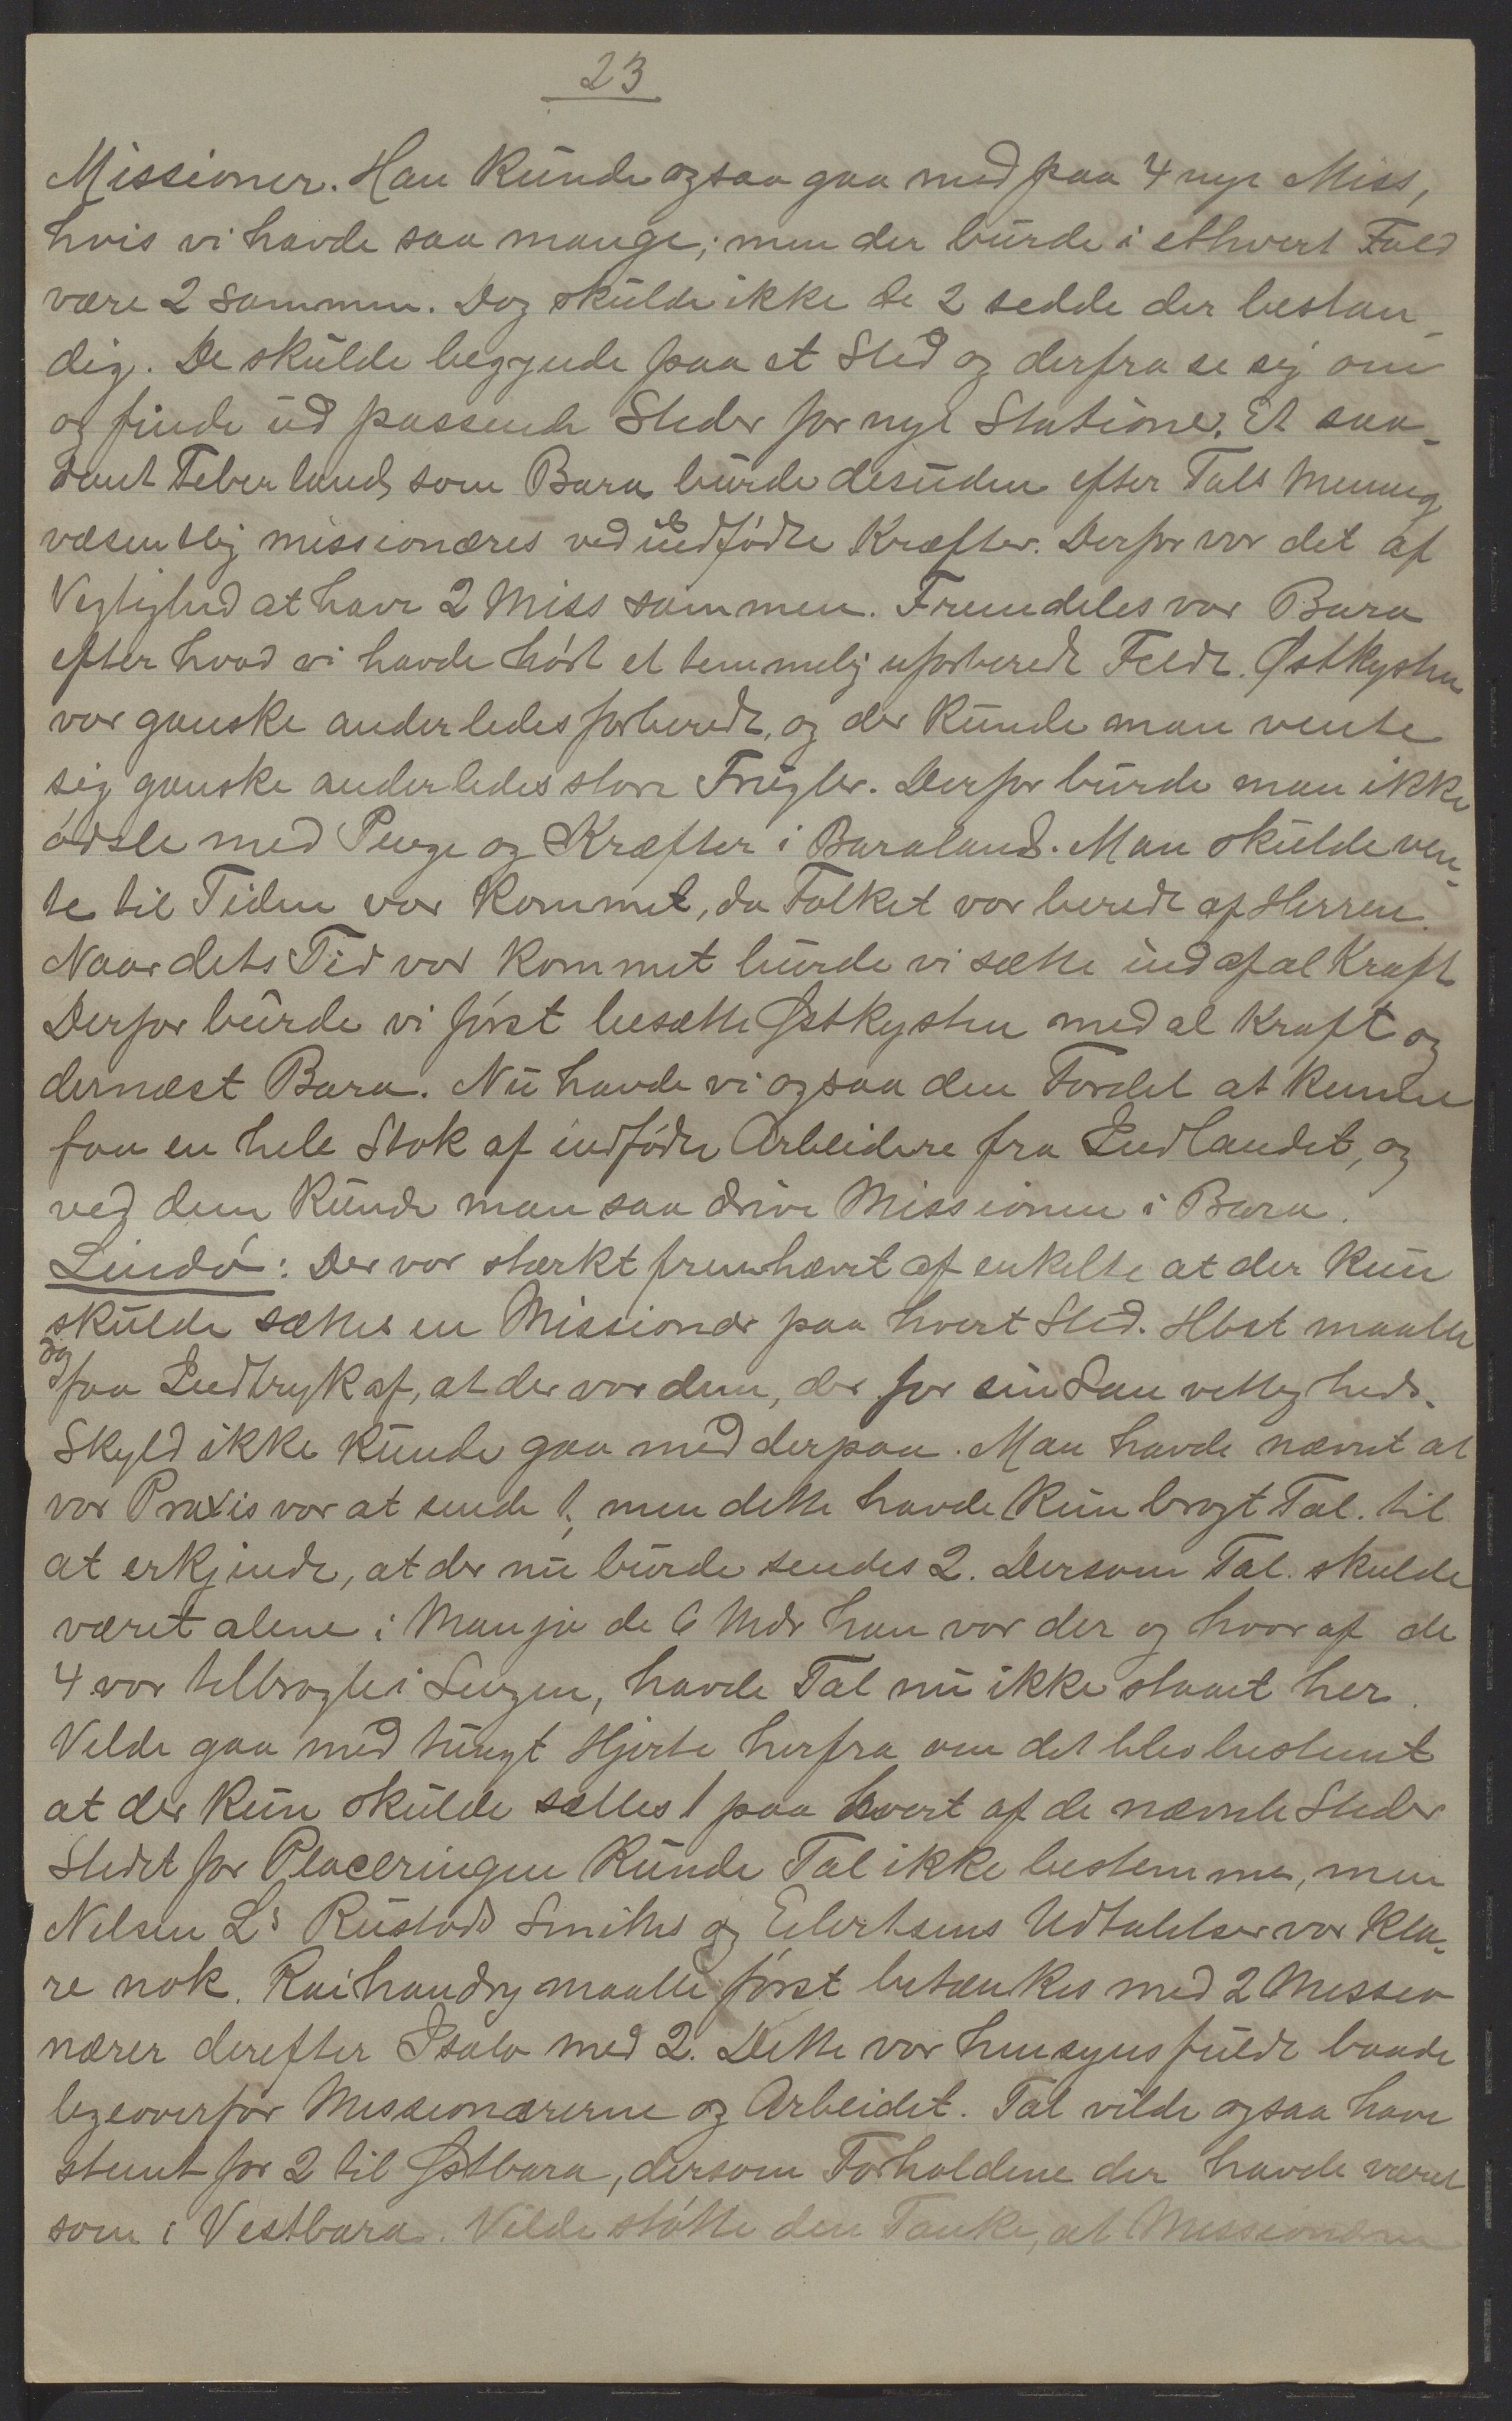 23
Missioner. Han kunde ogsaa gaa med paa 4 nye Miss,
hvis vi havde saa mange; men der burde i ethvert Fald
være 2 sammen. Dog skulde ikke de 2 sedde der bestan-
dig. De skulde begynde paa et Sted og derfra se sig om
og finde ud passende Steder for nye Stationer. Et saa-
dant Feberland som Bara burde desuden efter Tals Mening
væsentlig missionæres ved indfødte Kræfter. Derfor var det af
Vegtighed at have 2 Miss sammen. Fremdeles var Bara
efter hvad vi havde hørt et temmelig uforberedt Feldt. Østkysten
var ganske anderledes forberedt, og der kunde man vente
sig ganske anderledes store Frugter. Derfor burde man ikke
ødsle med Penge og Kræfter i Baraland. Man skulde ven-
te til Tiden var kommet, da Folket var beredt af Herren.
Naar dets Tid var kommet burde vi sætte ind af al Kraft
Derfor burde vi først besætte Østkysten med al Kraft og
dernæst Bara. Nu havde vi ogsaa den Fordel at kunne
faa en hele Stok af indfødte Arbeidere fra Indlandet, og
ved dem kunde man saa drive Missionen i Bara.
Lindø: Der var stærkt fremhævet af enkelte at der kun
skulde sættes en Missionær paa hvert Sted. Hbst maatte
dog faa Indtryk af, at der var dem, der for sin Samvettigheds
Skyld ikke kunde gaa med derpaa. Man havde nævnt at
vor Praxis var at sende 1, men dette havde kun bragt Tal. til
at erkjende, at der nu burde sendes 2. Dersom Tal. skulde
været alene i Manja de 6 Mdr han var der og hvoraf de
4 var tilbragte i Sengen, havde Tal nu ikke staaet her.
Vilde gaa med tungt Hjerte herfra om det blev bestemt
at der kun skulde sættes 1 paa hvert af de nævnte Steder
Stedet for Placeringen kunde Tal ikke bestemme, men
Nilsen Ls Rustads Smiths og Eilertsens Udtalelser var kla-
re nok. Raihandry maatte først betænkes med 2 Missio
nærer derefter Isalo med 2. Dette var hensynsfuldt baade
ligeoverfor Missionærerne og Arbeidet. Tal vilde ogsaa have
stemt for 2 til Østbara, dersom Forholdene der havde været
som i Vestbara. Vilde støtte den Tanke, at Missionæren